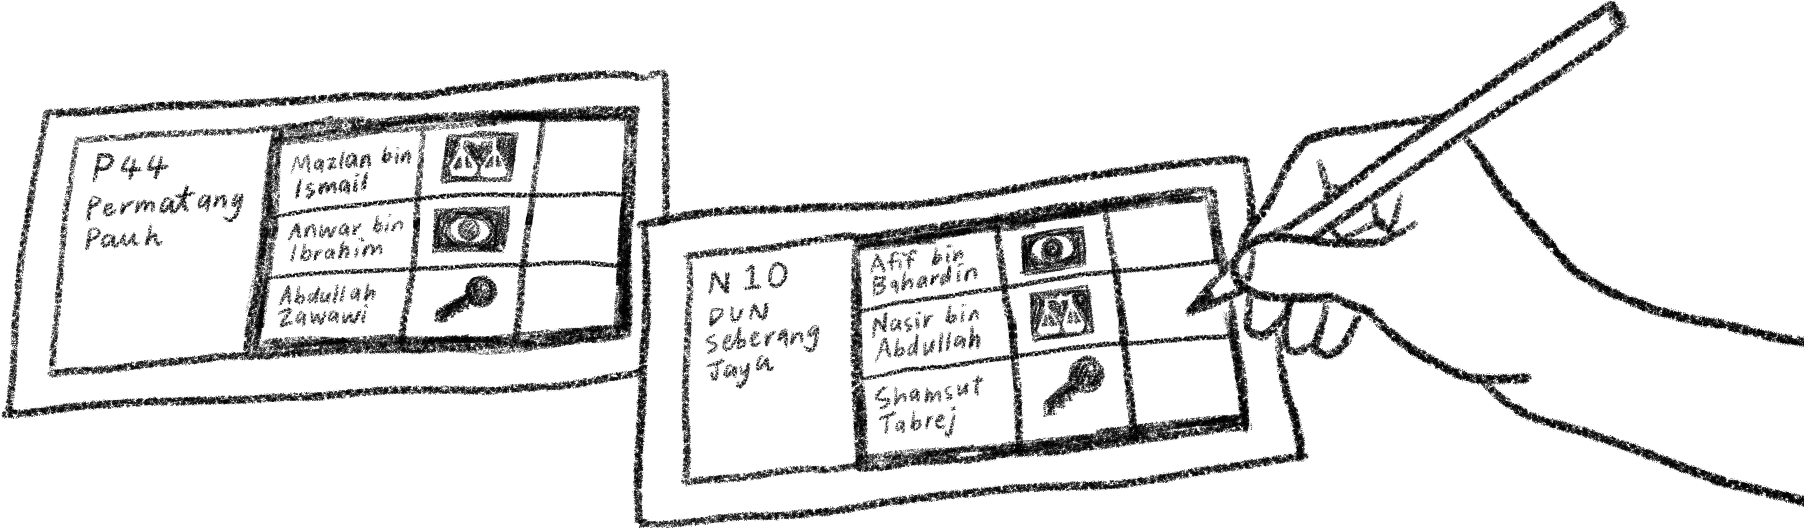 P44
Permatang
Pauh
Mazlan bin
Ismail
Anwar bin
Ibrahim
Abdullah
Zawawi
N 10
DUN
Seberang
Jaya
Afif bin
Bahardin
Nasir bin
Abdullah
Shamsut
Tabrej